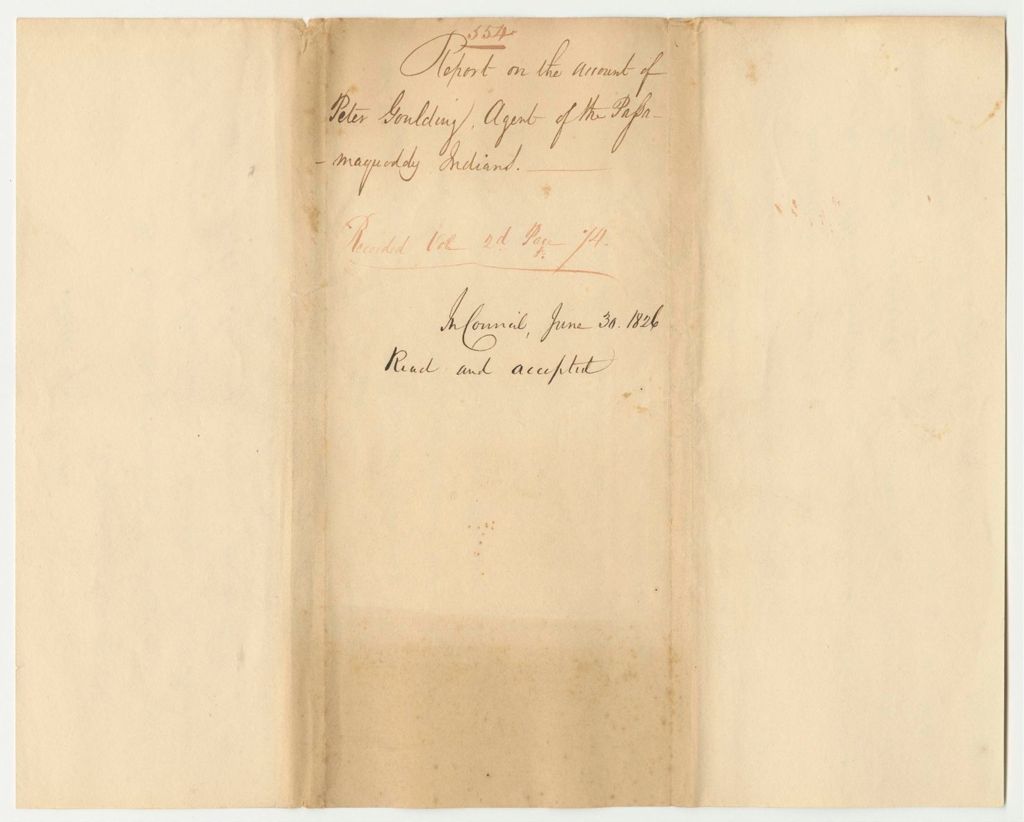 554
Report on the account of
Peter Goulding, Agent of the Passa-
-maquoddy Indians.
Recorded Vol 2d Page 74.
In Council, June 30. 1826
Read and accepted